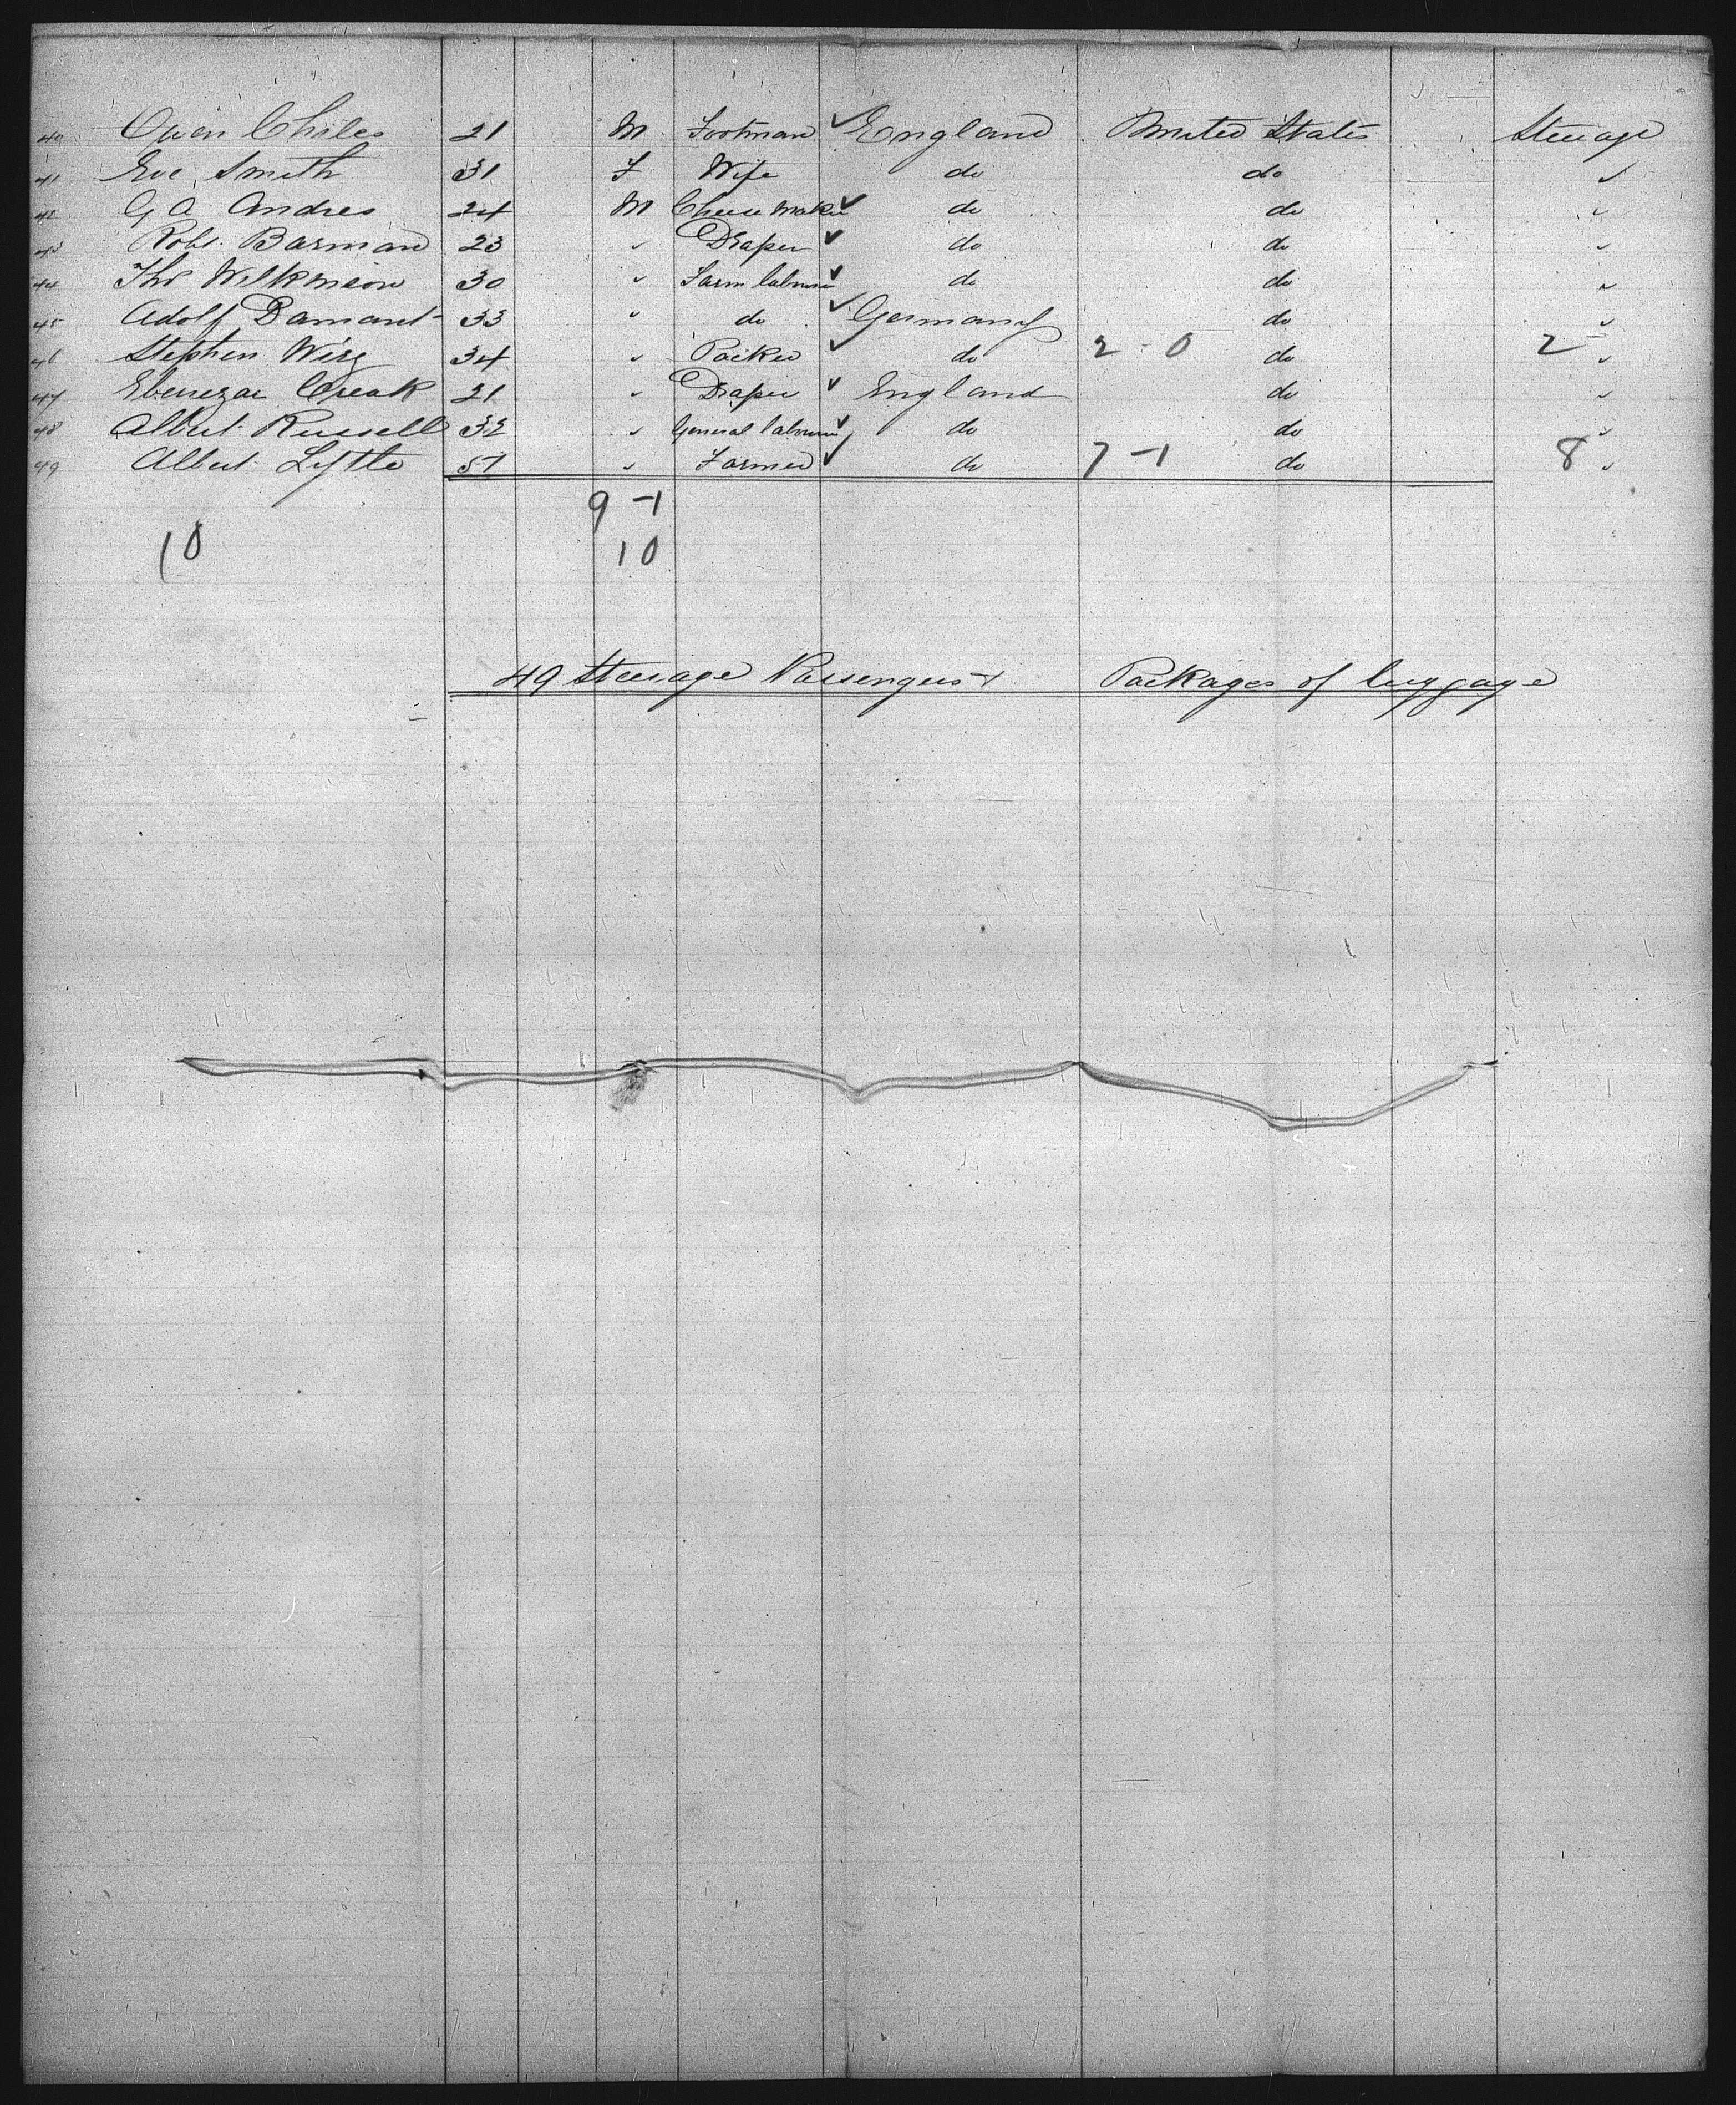 40 Owen Chiles 21 M Footman ✓ England United States Steerage
41 Eve Smith 31 F Wife do do "
42 G A Andres 24 M Cheese Maker ✓ do do "
43 Robt. Barman 23 " Draper ✓ do do "
44 Thos Wilkinson 30 " Farm labourer ✓ do do "
45 Adolf Damant 33 " do ✓ Germany do "
46 Stephen Wirz 34 " Packer ✓ do 2-0 do 2 "
47 Ebenezar Creak 21 " Draper ✓ England do "
48 Albert Russell 32 " General labourer ✓ do do "
49 Albert Lyttle 51 " Farmer ✓ do 7-1 do 8 "
9-1
10 10
49 Steerage Passengers + Packages of luggage